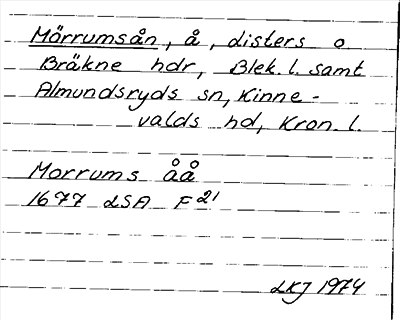 Mörrumsån, å, Listers o
Bräkne hdr, Blek. l. samt
Almundsryds sn, Kinne-
valds hd, Kron. l.
Morrums åå
1677 LSA F 21
LKJ 1974